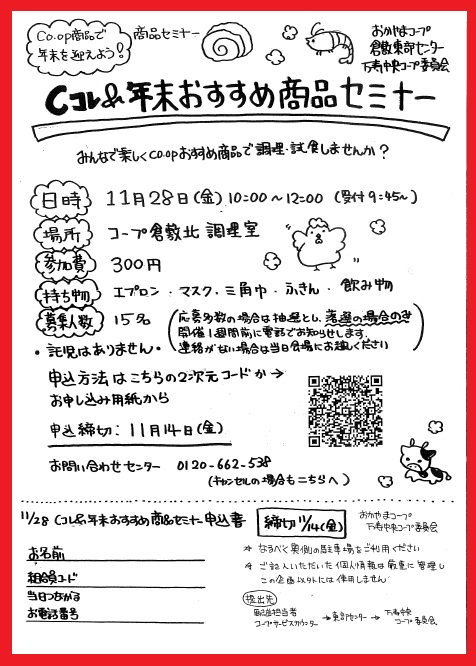 CO・OP商品で
年末を迎えよう!
商品セミナー
おかやまコープ
倉敷東部センター
万寿中央コープ委員会
Cコレ&年末おすすめ商品セミナー
みんなで楽しくCO・OPおすすめ商品で調理・試食しませんか?
日時 11月28日(金) 10:00〜12:00 (受付9:45〜)
場所 コープ倉敷北 調理室
参加費 300円
持ち物 エプロン・マスク・三角巾・ふきん・飲み物
募集人数 15名
応募多数の場合は抽選とし、落選の場合のみ
開催1週間前に電話でお知らせします。
連絡がない場合は当日会場にお越しください
・託児はありません・
申込方法はこちらの2次元コードか→
お申し込み用紙から
申込締切:11月14日(金)
お問い合わせセンター 0120-662-538
(キャンセルの場合もこちらへ)
11/28 Cコレ&年末おすすめ商品セミナー申込書
締切11/14(金)
おかやまコープ
万寿中央コープ委員会
お名前
組合員コード
当日つながる
お電話番号
☆ なるべく裏側の駐車場をご利用ください
☆ ご記入いただいた個人情報は厳重に管理し
この企画以外には使用しません
提出先
配達担当者
コープサービスカウンター
→東部センター→
万寿中央
コープ委員会